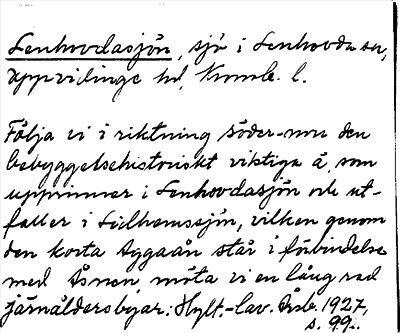 Lenhovdasjön, sjö i Lenhovda sn,
Uppvidinge hd, Kronob. l.
Följa vi i riktning söder-  den
bebyggelsehistoriskt viktiga å, som
upprinner i Lenhovdasjön och ut-
faller i  vilken genom
den korta Aggaån står i förbindelse
med Åsnen, möta vi en lång rad
järnåldersbyar. Hylt.-Cav. Årsb. 1927,
s. 99.